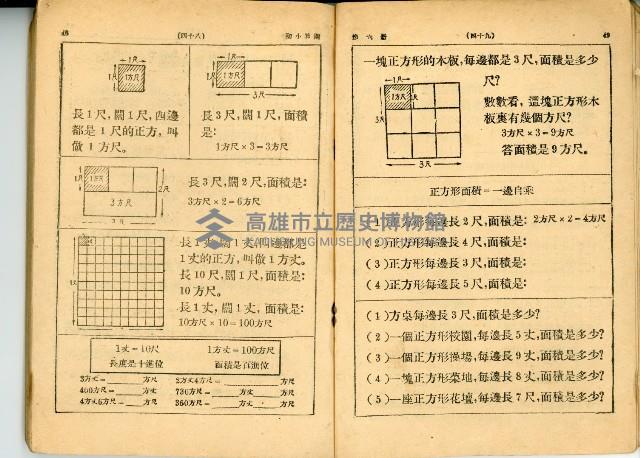 48
(四十八)
初小算術
1尺
1尺
1方尺
長1尺,闊1尺,四邊
都是1尺的正方,叫
做1方尺。
1尺
1尺
1方尺
3尺
長3尺,闊1尺,面積
是:
1方尺×3=3方尺
1尺
1尺
1方尺
2尺
3方尺
3尺
長3尺,闊2尺,面積是:
3方尺×2=6方尺
1丈
長1丈,闊1丈,四邊都是
1丈的正方,叫做1方丈。
長10尺,闊1尺,面積是:
10方尺。
長1丈,闊1丈,面積是:
10方尺×10=100方尺
1丈=10尺
長度是十進位
1方丈=100方尺
面積是百進位
3方丈=______方尺
2方丈4方尺=______方尺
400方尺=______方丈
730方尺=______方丈______方尺
4方丈6方尺=______方尺
360方尺=______方丈______方尺
第六冊
(四十九)
49
一塊正方形的木板,每邊都是3尺,面積是多少
尺?
1尺
1方尺
1尺
3尺
3尺
數數看,這塊正方形木
板裏有幾個方尺?
3方尺×3=9方尺
答面積是9方尺。
正方形面積=一邊自乘
正方形每邊長2尺,面積是:2方尺×2=4方尺
(2)正方形每邊長4尺,面積是:
(3)正方形每邊長3尺,面積是:
(4)正方形每邊長5尺,面積是:
(1)方桌每邊長3尺,面積是多少?
(2)一個正方形校園,每邊長5丈,面積是多少?
(3)一個正方形操場,每邊長9丈,面積是多少?
(4)一塊正方形菜地,每邊長8丈,面積是多少?
(5)一座正方形花壇,每邊長7尺,面積是多少?
高雄市立歷史博物館
KAOHSIUNG MUSEUM OF HISTORY